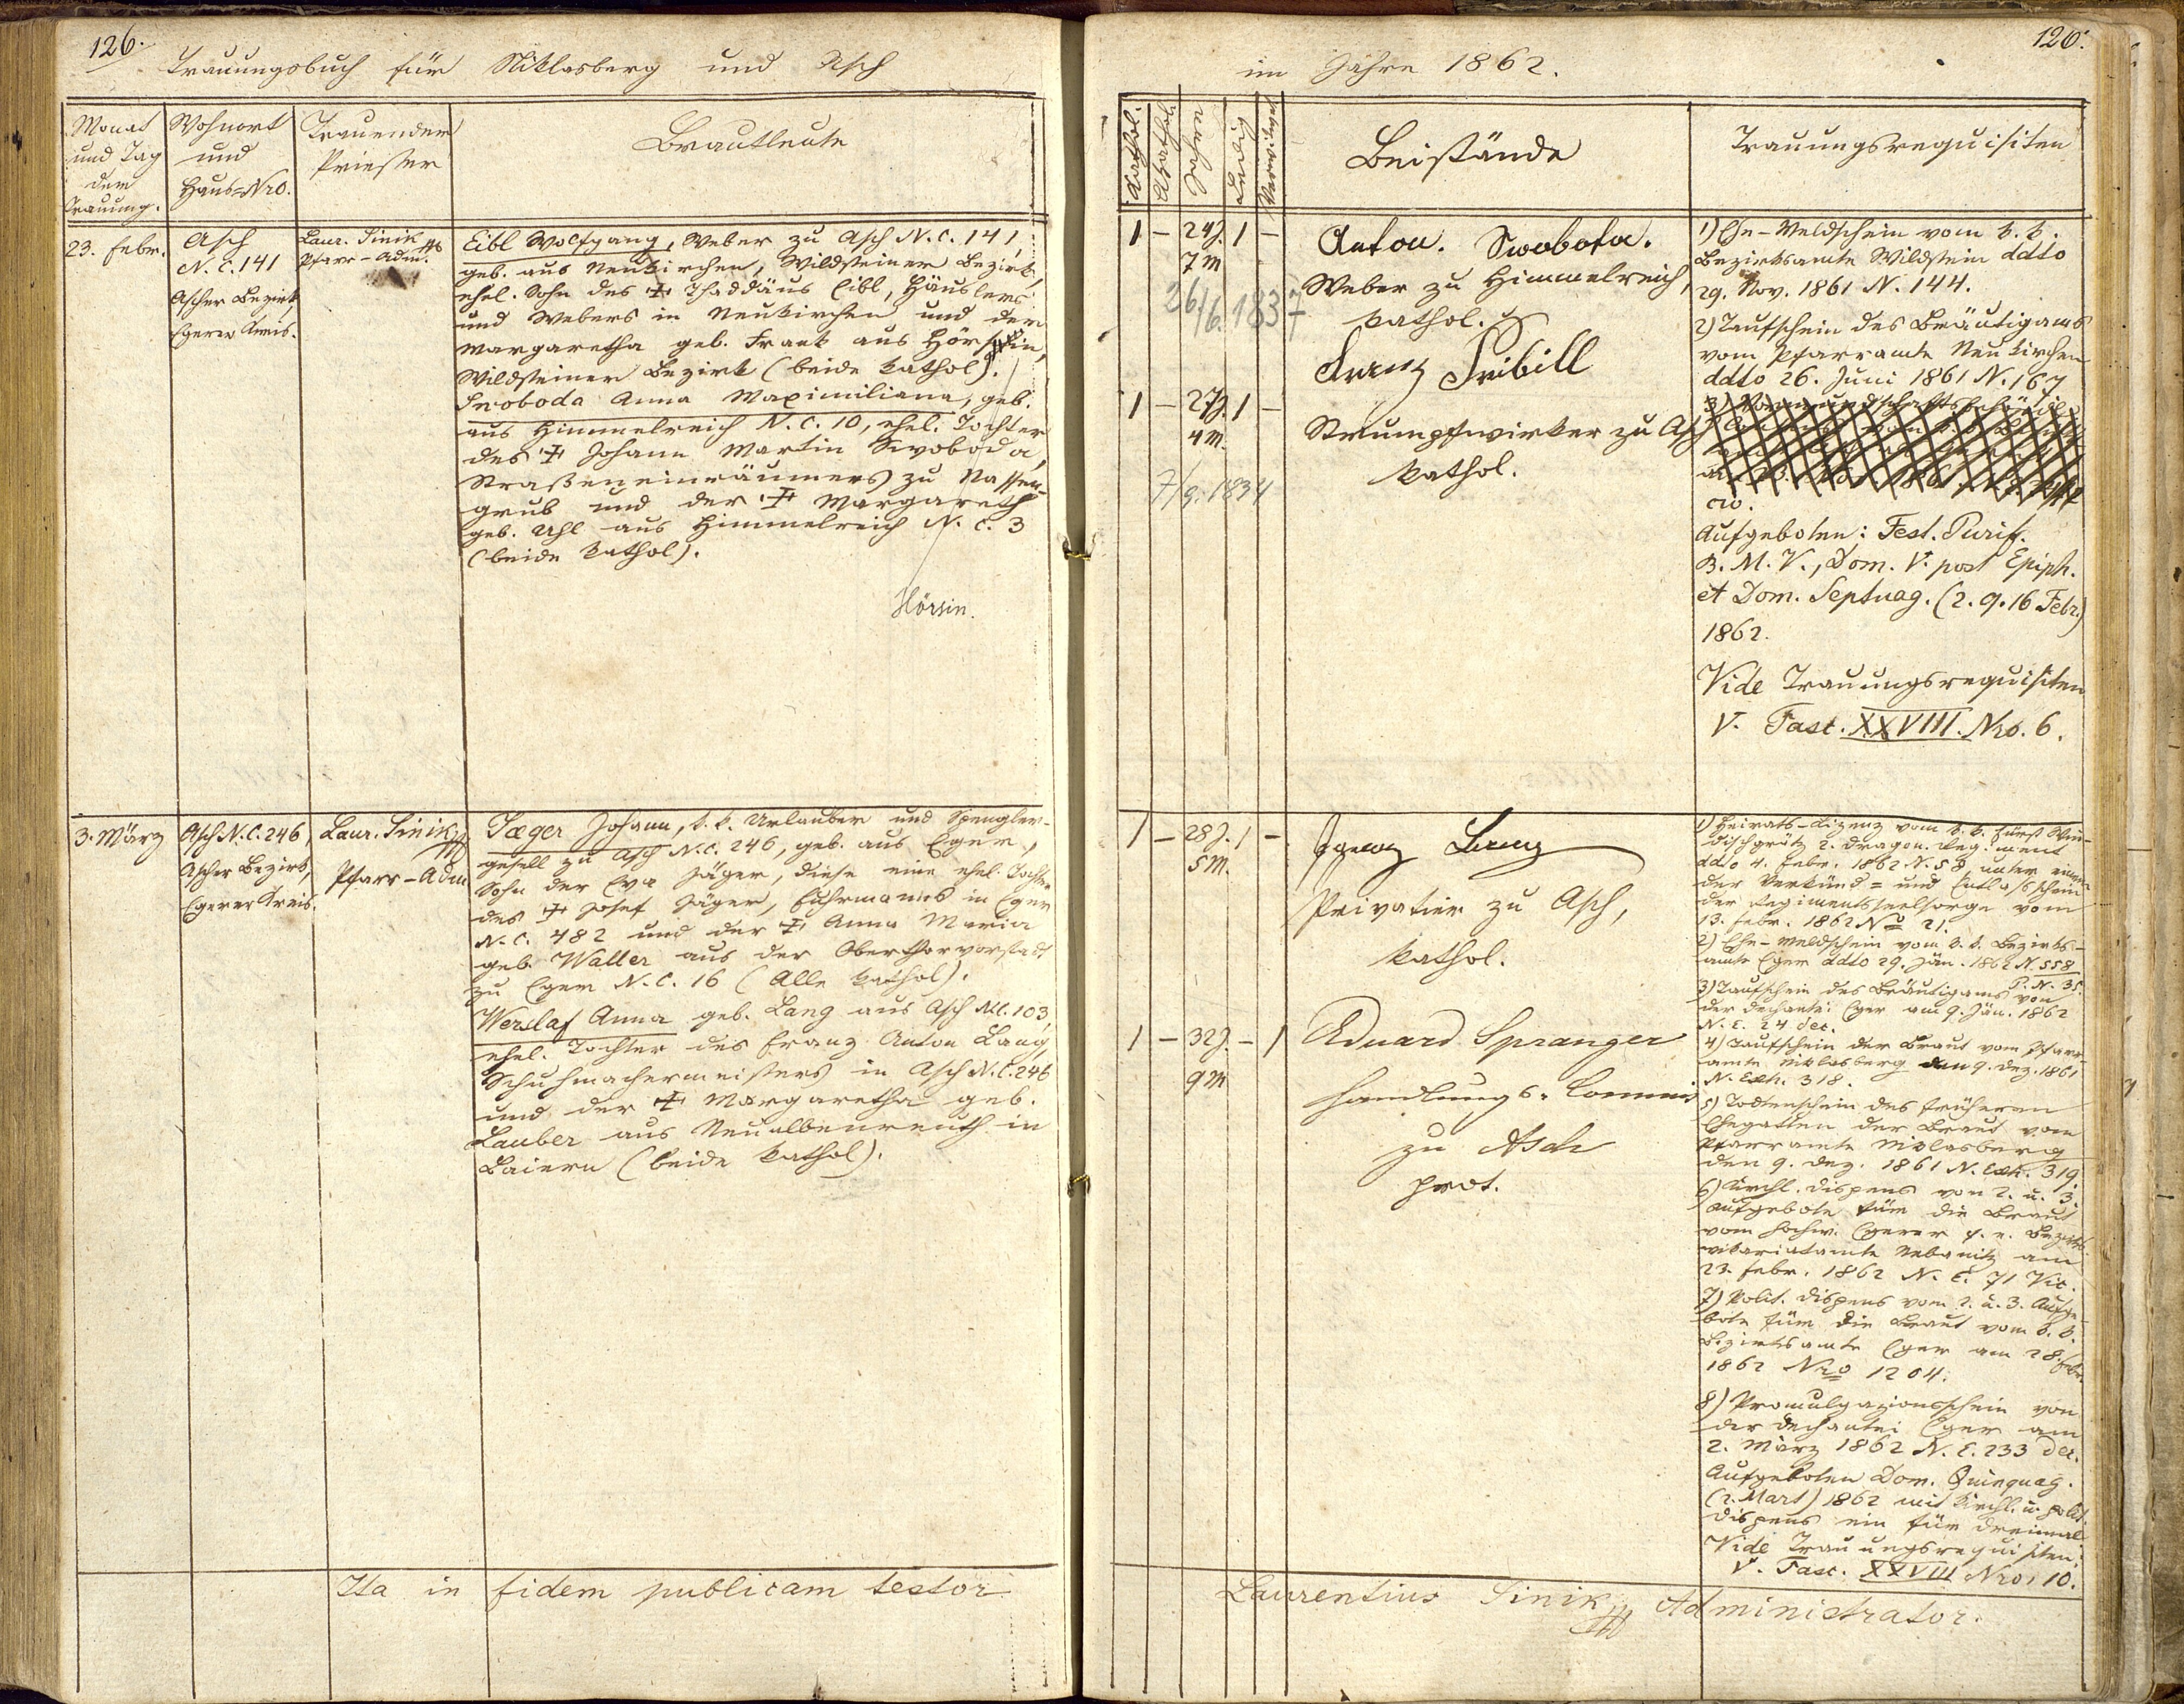 126.
Trauungsbuch für Niklasberg und Asch
Monat
und Tag
der
Trauung.
Wohnort
und
Haus=Nro.
Trauender
Priester
Brautleute
23. Febr.
Asch
N. C. 141
Ascher Bezirk,
Egerer Kreis.
Laur. Sinik
Pfarr-Adm.
Eibl Wolfgang, Weber zu Asch N. C. 141,
geb. aus Neukirchen, Wildsteiner Bezirk,
ehel. Sohn des ✝ Thaddäus Eibl, Häuslers
und Webers in Neukirchen und der
Margaretha geb. Frank aus Hörsin,
Wildsteiner Bezirk (beide kathol).
Swoboda Anna Maximiliana, geb.
aus Himmelreich N. C. 10, ehel. Tochter
des ✝ Johann Martin Swoboda,
Straßeneinräumers zu Nassen-
grub und der ✝ Margareth
geb. Uhl aus Himmelreich N. C. 3
(beide kathol).
Hörsin.
3. März
Asch N. C. 246,
Ascher Bezirk,
Egerer Kreis.
Laur. Sinik
Pfarr-Adm
Jæger Johann, k. k. Urlauber und Spengler-
gesell zu Asch N. C. 246, geb. aus Eger,
Sohn der Eva Jäger, diese eine ehel. Tochter
des ✝ Josef Jäger, Fuhrmanns in Eger
N. C. 482 und der ✝ Anna Maria
geb. Waller aus der Oberthorvorstadt
zu Eger N. C. 16 (Alle kathol).
Anna geb. Lang aus Asch N. C. 103,
ehel. Tochter des Franz Anton Lang,
Schuhmachermeisters in Asch N. C. 246
und der ✝ Margaretha geb.
Lauber aus Neualbenreuth in
Baiern (beide kathol).
Ita in fidem publicam testor
126.
im Jahre 1862.
Kathol.
Akathol.
Ledig
Beistände
Trauungsrequisiten
1 – 24J. 1 –
7 M
26/6. 1837
Anton. Swoboda.
Weber zu Himmelreich,
kathol.
Franz Pribill
1 – 27J. 1 –
4 M.
7/9. 1834
Strumpfwirker zu Asch
kathol.
1) Ehe-Meldschein vom k. k.
Bezirksamte Wildstein ddto
29. Nov. 1861 N. 144.
2) Taufschein des Bräutigams
vom Pfarramte Neukirchen
ddto 26. Juni 1861 N. 167
3)
civ.
Aufgeboten: Fest. Purif.
B. M. V., Dom. V. post Epiph.
et Dom. Septuag. (2. 9. 16 Febr.)
1862.
Vide Trauungsrequisiten
V. Fasc. XXVIII. Nro. 6.
1 – 28J. 1 –
5 M.
Ignaz
Privatier zu Asch,
kathol.
1 – 32J. – 1
9 M
Eduard Spranger
Handlungs-Commis
zu Asch
prot.
1) Heirats-Lizenz vom k. k. Fürst Win-
dischgrätz 2. Dragon. Regiment
ddto 4. Febr. 1862 N. 58 unter einem
der Verkünd= und Entlaßschein
der Regimentsseelsorge vom
13. Febr. 1862 No 21.
2) Ehe-Meldschein vom k. k. Bezirks-
amte Eger ddto 29. Jän. 1862 N. 558
P. N. 35.
3) Taufschein des Bräutigams von
der Dechantei Eger am 9. Jän. 1862
N. E. 24 dec.
4) Taufschein der Braut vom Pfarr-
amte Niklasberg den 9. Dez. 1861
N. Exh. 318.
5) Todtenschein des früheren
Ehegatten der Braut vom
Pfarramte Niklasberg
den 9. Dez. 1861 N. Exh. 319.
6) Kirchl. Dispens von 2. u. 3.
Aufgebote für die Braut
vom hochw. Egerer f. e. Bezirks-
vikariatamte Nebanitz am
23. Febr. 1862 N. E. 71 Vic.
7) Polit. Dispens vom 2. u. 3. Aufge-
bote für die Braut vom k. k.
Bezirksamte Eger am 28. Febr.
1862 Nro 1204.
8) Promulgazionsschein von
der Dechantei Eger am
2. März 1862 N. E. 233 dec.
Aufgeboten Dom. Quinquag.
(2. Mart) 1862 mit kirchl. u. polit.
Dispens ein für dreimal.
Vide Trauungsrequisiten:
V. Fasc. XXVIII Nro. 10.
Laurentius Sinik, Administrator.